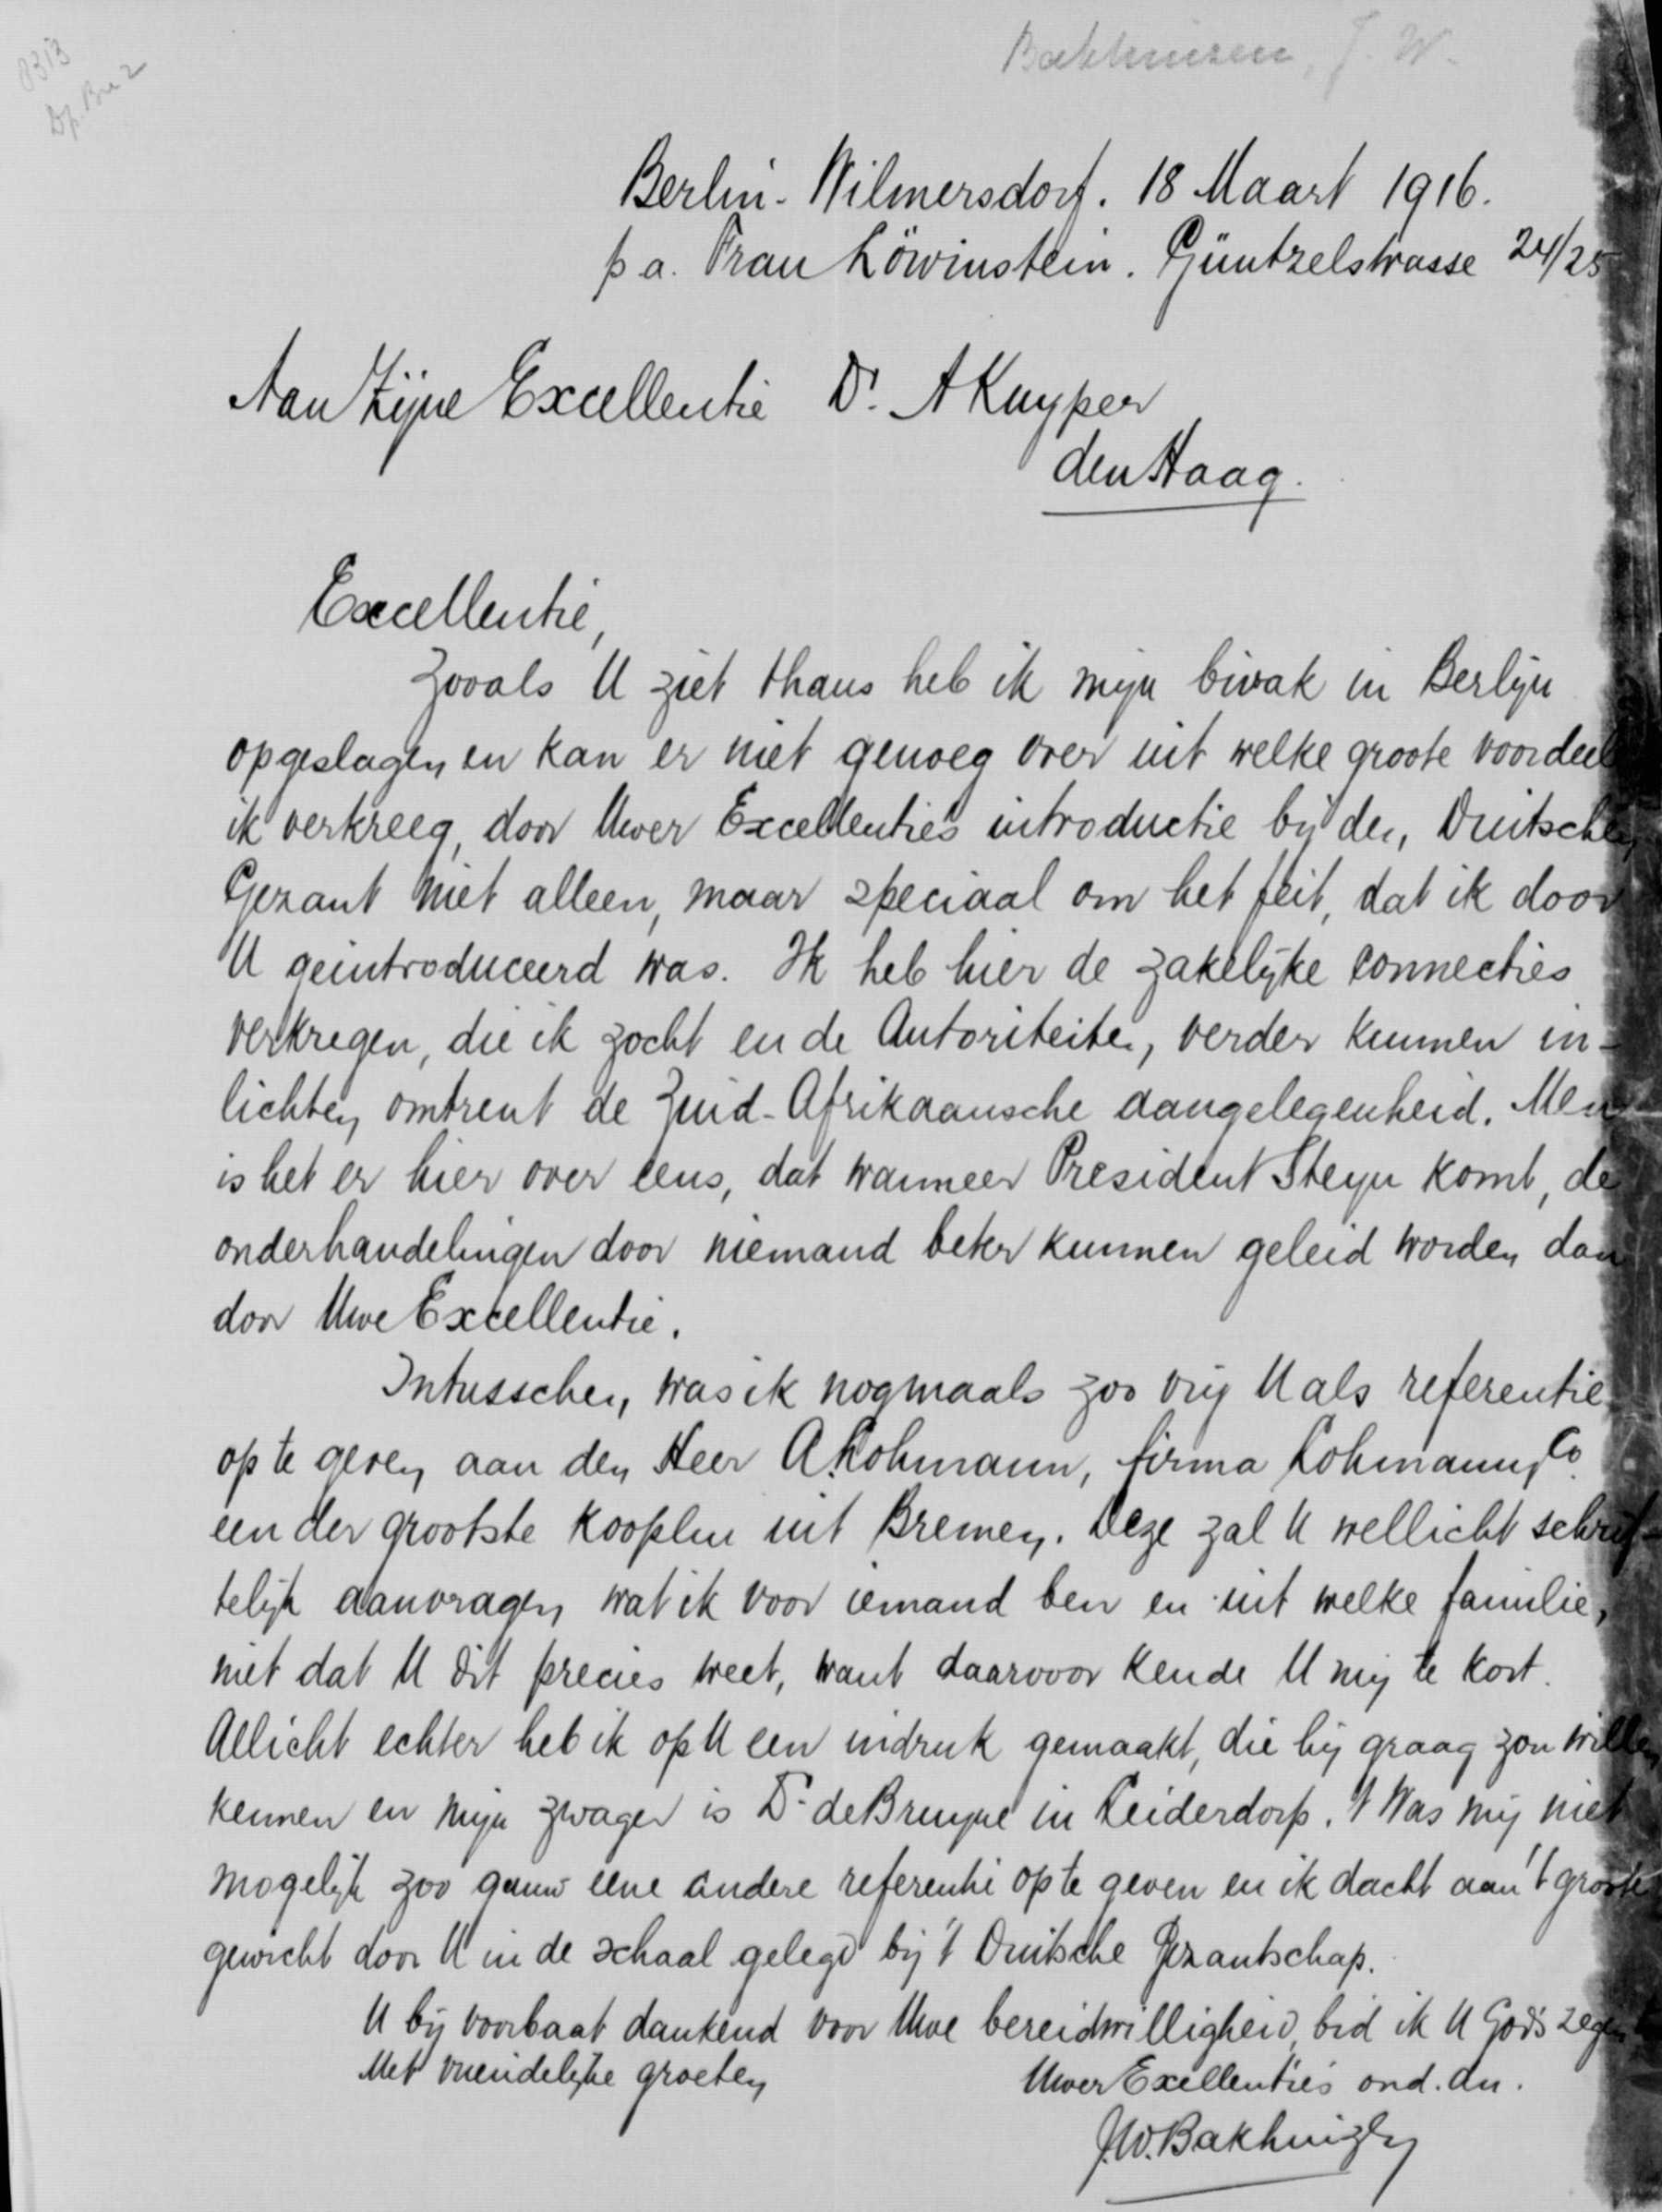 Bakhuizen, J. W.
Berlin-Wilmersdorf. 18 Maart 1916.
p a. Frau Löwinstein. Güntzelstrasse 24/25
Aan Zijne Excellentie Dr. A Kuyper
den Haag.
Excellentie,
Zooals U ziet thans heb ik mijn bivak in Berlijn
opgeslagen en kan er niet genoeg over uit welke groote voordeel
ik verkreeg, door Uwer Excellentie's introductie bij den Duitschen
Gezant niet alleen, maar speciaal om het feit, dat ik door
U geintroduceerd was. Ik heb hier de zakelijke connecties
verkregen, die ik zocht en de Autoriteiten verder kunnen in-
lichten omtrent de Zuid-Afrikaansche aangelegenheid. Men
is het er hier over eens, dat wanneer President Steyn komt, de
onderhandelingen door niemand beter kunnen geleid worden dan
door Uwe Excellentie.
Intusschen was ik nogmaals zoo vrij U als referentie
op te geven aan den Heer A. Lohmann, firma Lohmann, Co.
een der grootste kooplui uit Bremen. Deze zal U wellicht schrif-
telijk aanvragen wat ik voor iemand ben en uit welke familie,
niet dat U dit precies weet, want daarvoor kende U mij te kort.
Allicht echter heb ik op U een indruk gemaakt, die hij graag zou willen
kennen en mijn zwager is Ds. de Bruyne in Leiderdorp. 't Was mij niet
mogelijk zoo gauw eene andere referentie op te geven en ik dacht aan 't groote
gewicht door U in de schaal gelegd bij 't Duitsche Gezantschap.
U bij voorbaat dankend voor Uwe bereidwilligheid, bid ik U Gods zegen
Met vriendelijke groeten
Uwer Exellentie's ond. dn.
J.W. Bakhuizen